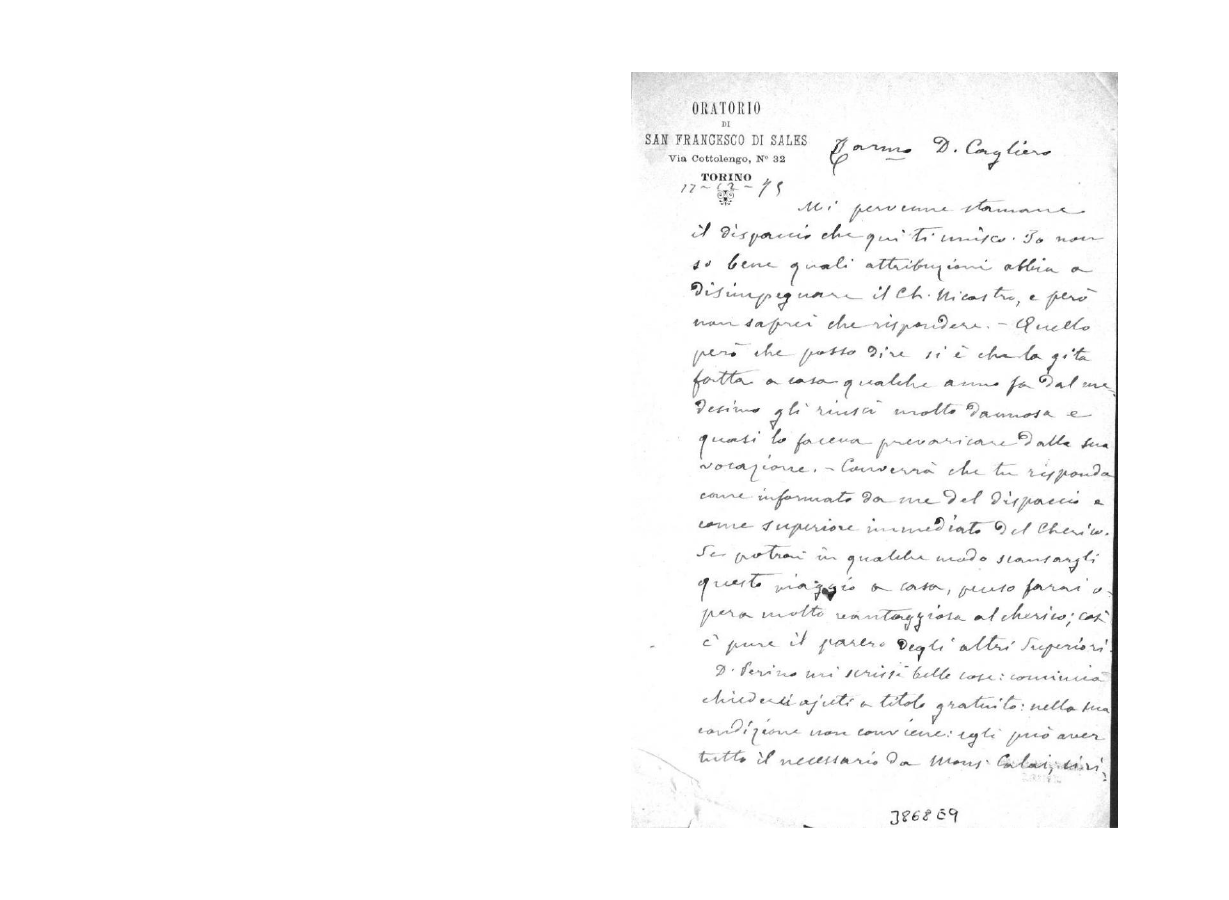 ORATORIO
DI
SAN FRANCESCO DI SALES
Via Cottolengo, Nº 32
TORINO
Car.mo D. Cagliero
Mi pervenne stamane
il dispaccio che qui ti unisco. Io non
so bene quali attribuzioni abbia a
disimpegnare il Ch. Nicastro, e però
non saprei che rispondere. – Quello
però che posso dire si è che la gita
fatta a casa qualche anno fa dal me-
desimo gli riuscì molto dannosa e
quasi lo faceva prevaricare dalla sua
vocazione. – Converrà che tu risponda
come informato da me del dispaccio e
come superiore immediato del Cherico.
Se potrai in qualche modo scansargli
questo viaggio a casa, penso farai o-
pera molto vantaggiosa al cherico; così
è pure il parere degli altri Superiori.
D. Perino mi scrisse belle cose: comincia
chiederci ajuti a titolo gratuito: nella sua
condizione non conviene: egli può aver
tutto il necessario da Mons. Calai, si ri-
3868 E9